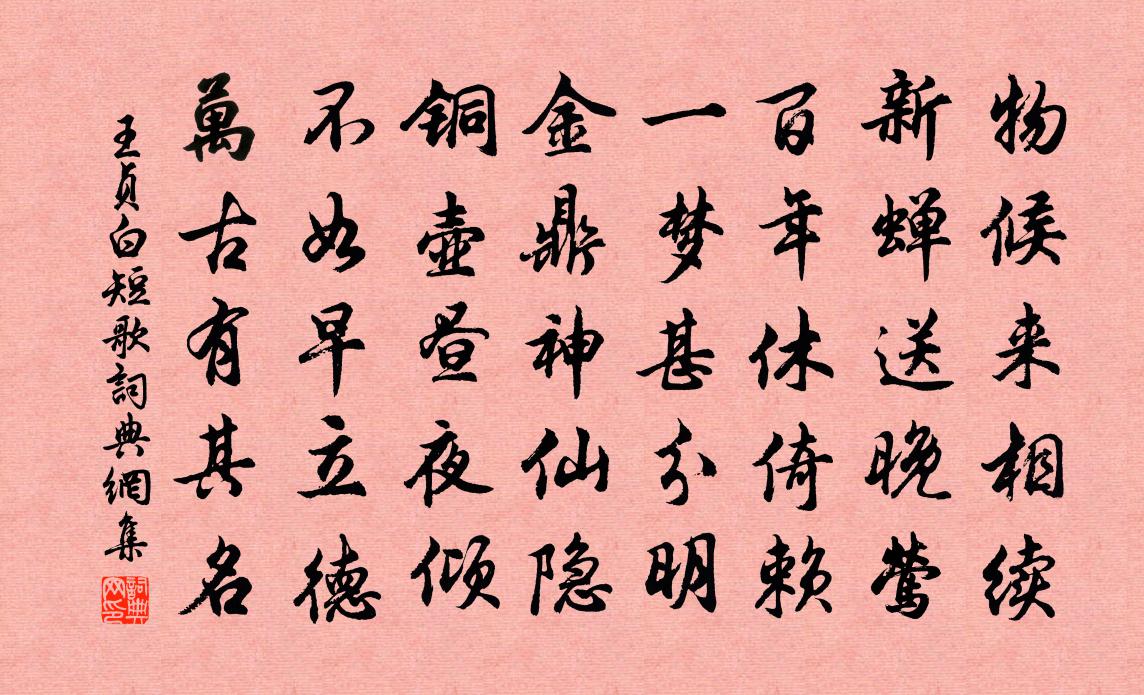 物候来相续
新蝉送晚莺
百年休倚赖
一梦甚分明
金鼎神仙隐
铜壶昼夜倾
不如早立德
萬古有其名
王贞白短歌詞典網集
詞典网印